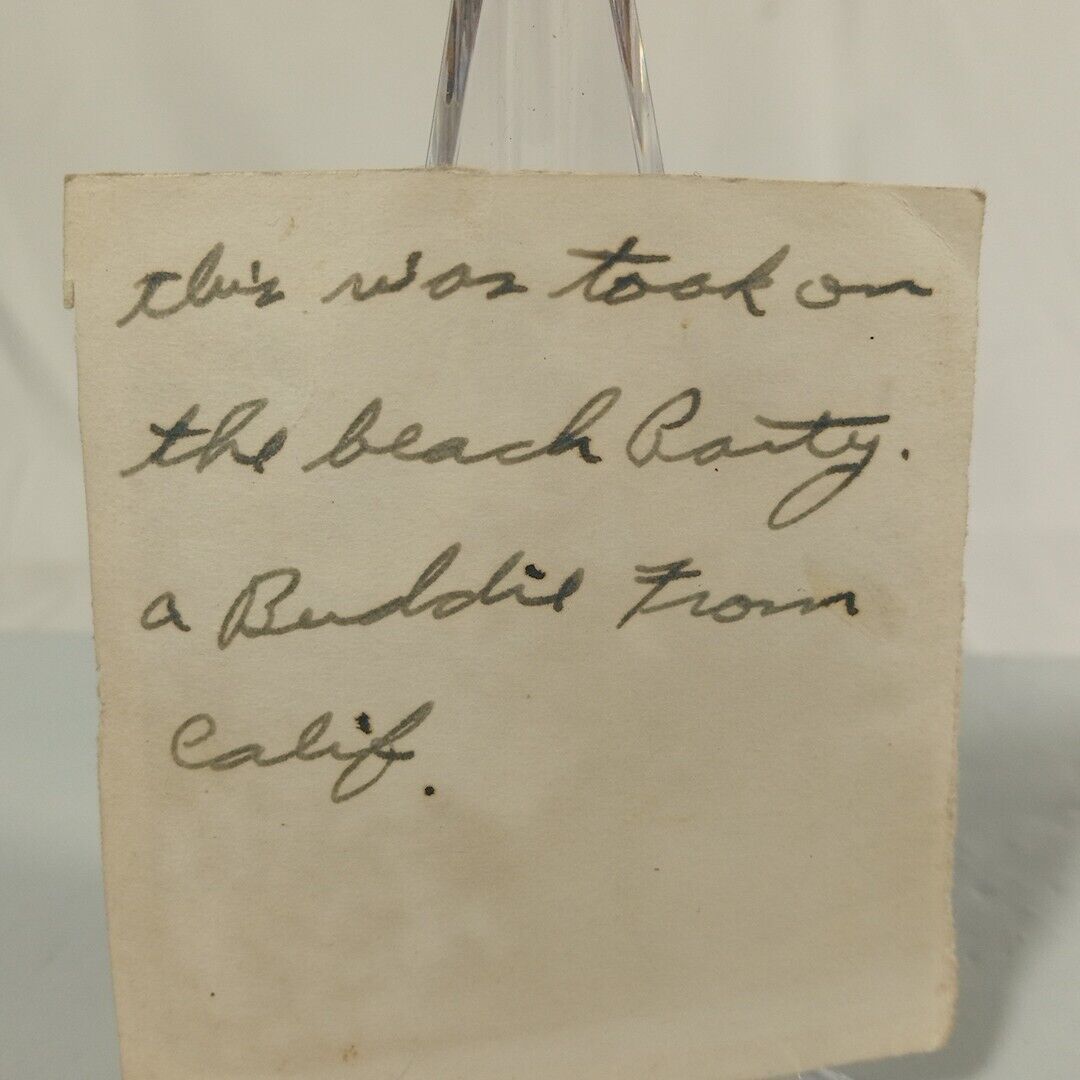 this was took on
the beach Party.
a Buddie From
Calif.